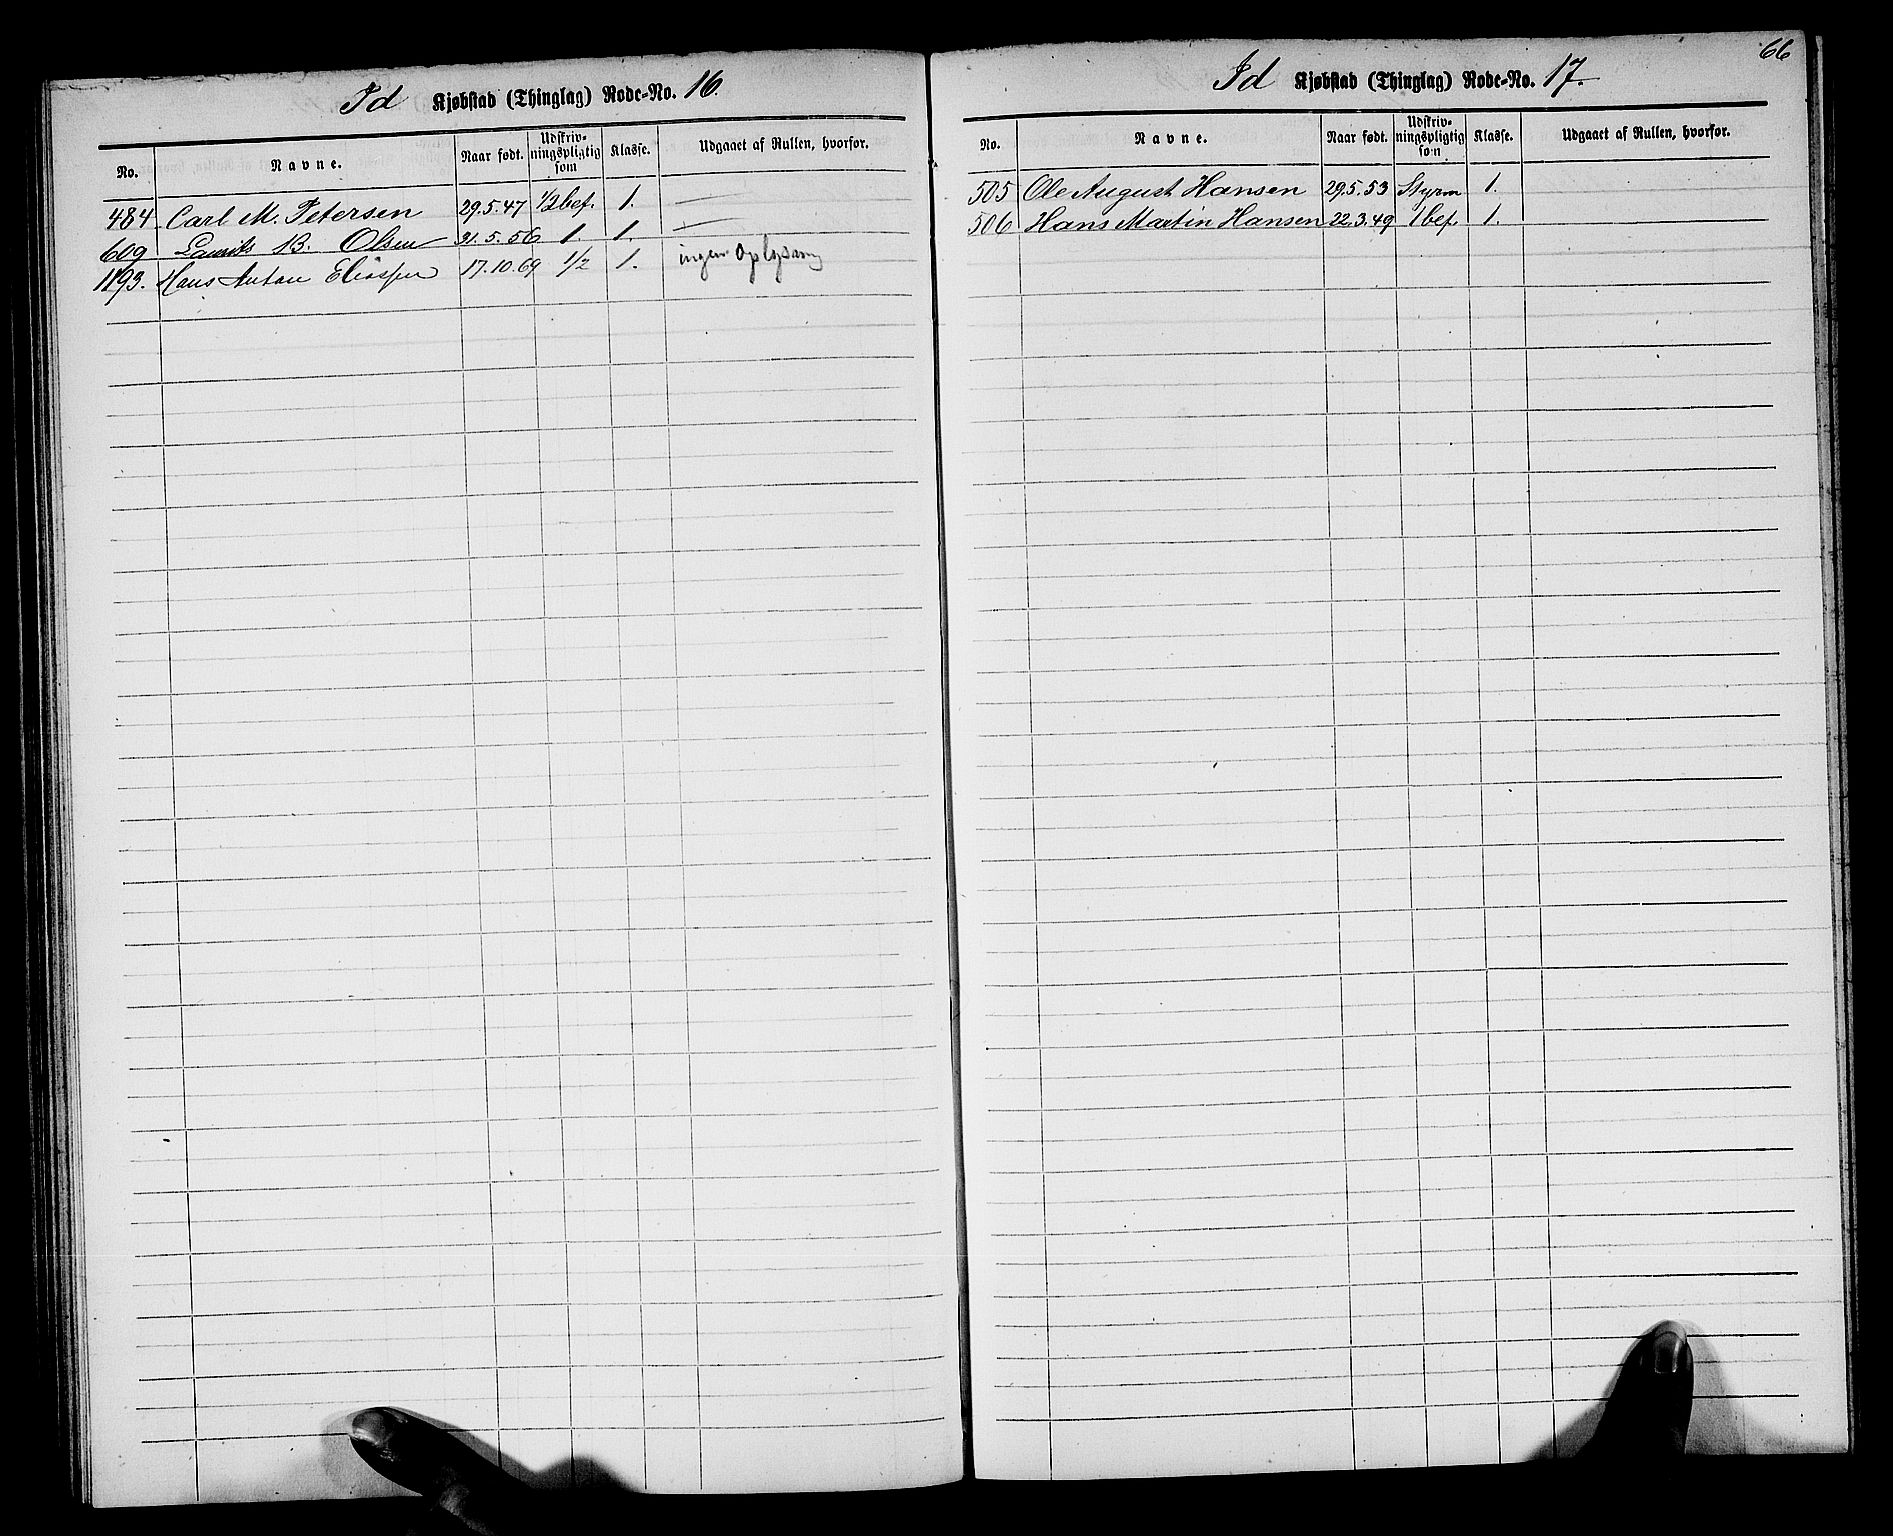 Id Kjøbstad (Thinglag) Rode-No. 16.
No. Navne. Naar født. Udskrivningspligtig som Klasse. Udgaaet af Rullen, hvorfor.
484 Carl M. Petersen 29.5.47 1/2 bef. 1. —
609 Lauritz B. Olsen 31.5.56 1. 1. —
1193. Hans Anton Eliassen 17.10.69 1/2 1. ingen Oplysning
66
Id Kjøbstad (Thinglag) Rode-No. 17.
No. Navne. Naar født. Udskrivningspligtig som Klasse. Udgaaet af Rullen, hvorfor.
505 Ole August Hansen 29.5.53 Styrm 1.
506 Hans Martin Hansen 22.3.49 1 bef. 1.